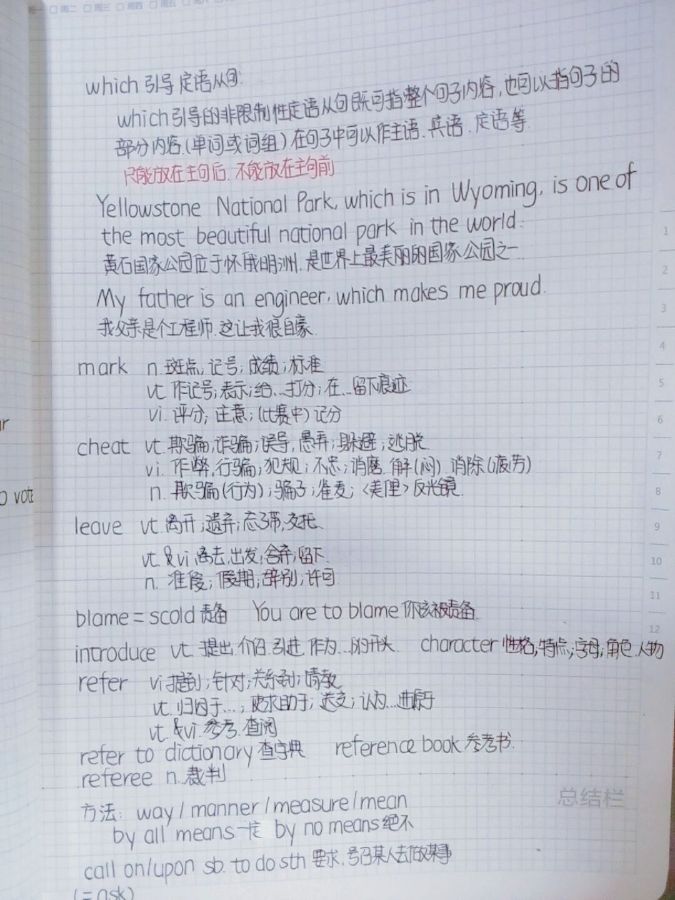 周二 周三 周四 周五 周六
which 引导定语从句:
which引导的非限制性定语从句既可指整个句子内容,也可以指句子的
部分内容(单词或词组)在句子中可以作主语、宾语、定语等
只能放在主句后.不能放在主句前
Yellowstone National Park, which is in Wyoming, is one of
the most beautiful national park in the world.
黄石国家公园位于怀俄明洲.是世界上最美丽的国家公园之一
My father is an engineer, which makes me proud.
我父亲是个工程师.这让我很自豪.
mark n. 斑点,记号;成绩;标准
vt. 作记号;表示;给...打分;在...留下痕迹
vi. 评分;注意;(比赛中)记分
cheat vt. 欺骗,诈骗;误导,愚弄;躲避;逃脱
vi. 作弊,行骗;犯规;不忠;消磨.解(闷).消除(疲劳)
n. 欺骗(行为);骗子;雀麦;<美俚>反光镜.
leave vt. 离开;遗弃;忘了带,交托.
vt.&vi.离去,出发,舍弃,留下.
n. 准假;假期;辞别;许可
blame = scold 责备 You are to blame 你该被责备.
introduce vt. 提出.介绍.引进.作为...的开头 character 性格,特点;字母,角色.人物
refer vi.提到;针对;关系到;请教
vt. 归因于...;使求助于;送交;认为...
vt. &vi.参考.查阅
refer to dictionary 查字典 reference book 参考书.
referee n. 裁判
方法: way / manner / measure / mean
by all means 一定 by no means 绝不
call on/upon sb. to do sth 要求.号召某人去做某事
(= ask)
o vote
总结栏
1
2
3
4
5
6
7
8
9
10
11
12